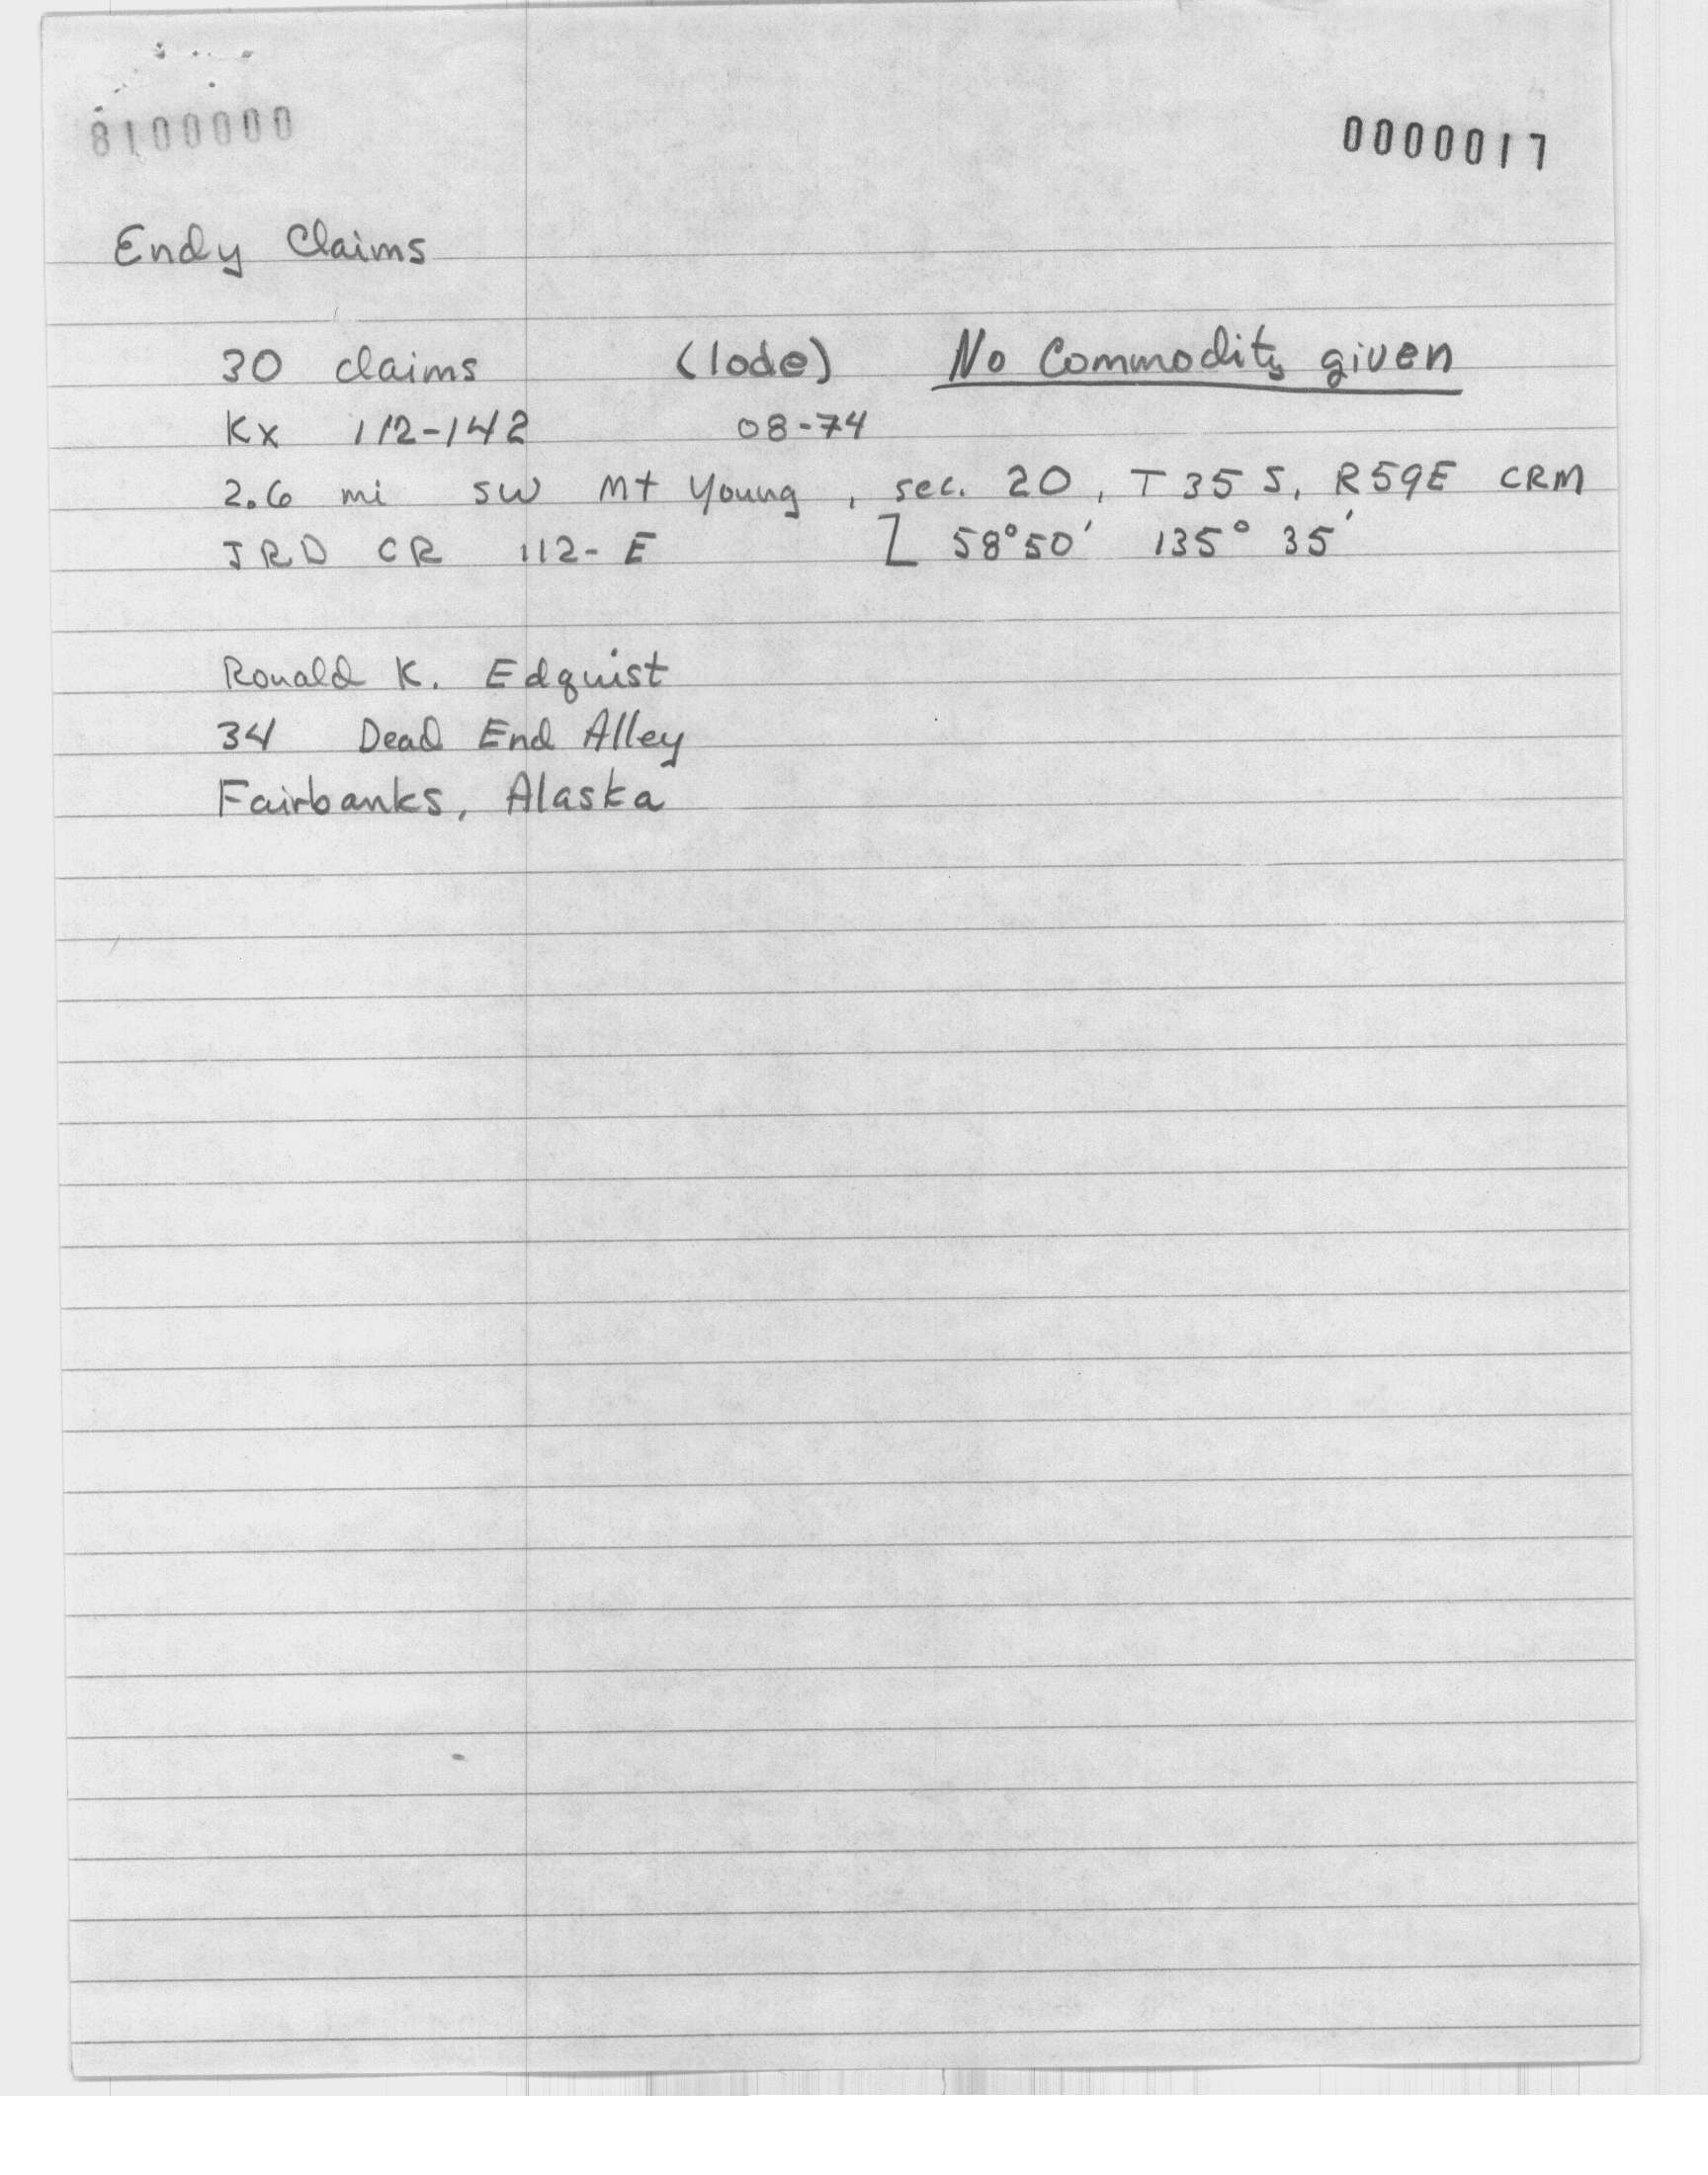 8100000
0000017
Endy Claims
30 claims (lode) No Commodity given
Kx 112-142 08-74
2.6 mi SW Mt Young, sec. 20, T 35 S, R59E CRM
JRD CR 112-E [ 58°50' 135° 35'
Ronald K. Edquist
34 Dead End Alley
Fairbanks, Alaska